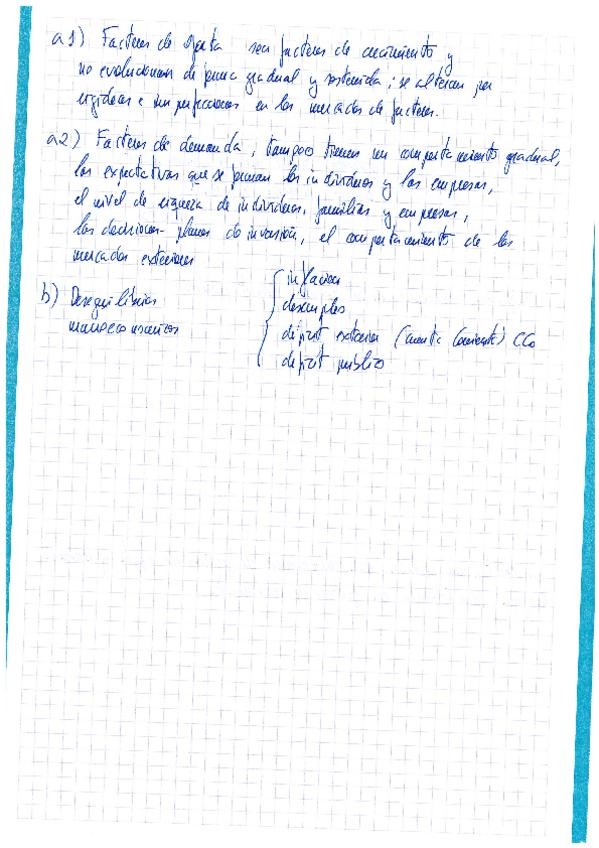 a1) Factores de oferta son factores de crecimiento y
no evolucionan de forma gradual y sostenida; se alteran por
rigideces e imperfecciones en los mercados de factores.
a2) Factores de demanda, tampoco tienen un comportamiento gradual,
las expectativas que se forman los individuos y las empresas,
el nivel de riqueza de individuos, familias y empresas,
las decisiones planes de inversión, el comportamiento de los
mercados exteriores
b) Desequilibrios
macroeconómicos
inflación
desempleo
déficit exterior (cuenta corriente) CCo
déficit público